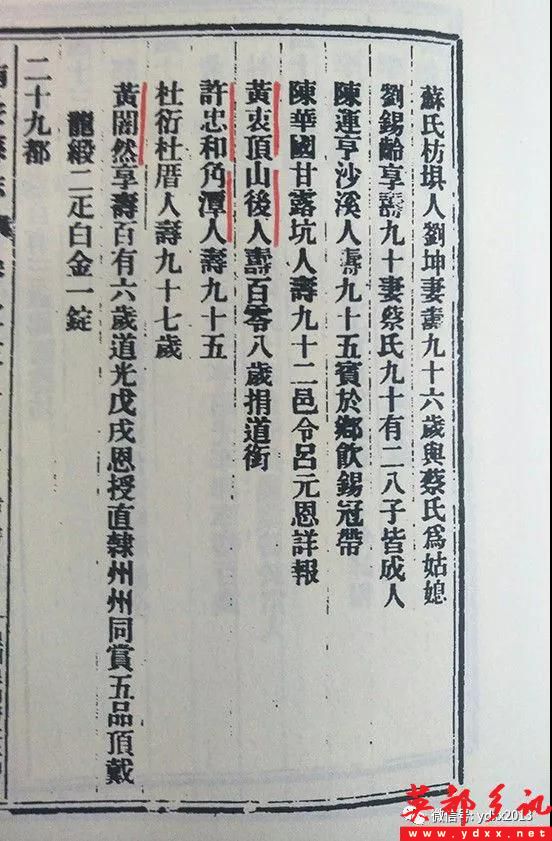 蘇氏枋埧人劉坤妻壽九十六歲與蔡氏爲姑媳
劉錫齡享壽九十妻蔡氏九十有二八子皆成人
陳連亨沙溪人壽九十五賓於鄉飲錫冠帶
陳華國甘露坑人壽九十二邑令呂元恩詳報
黃衷頂山後人壽百零八歲捐道銜
許忠和角潭人壽九十五
杜衍杜厝人壽九十七歲
黃闇然享壽百有六歲道光戊戌恩授直隸州州同賞五品頂戴
龍緞二疋白金一錠
二十九都
英都乡讯
微信号: ydxx2013
www.ydxx.net